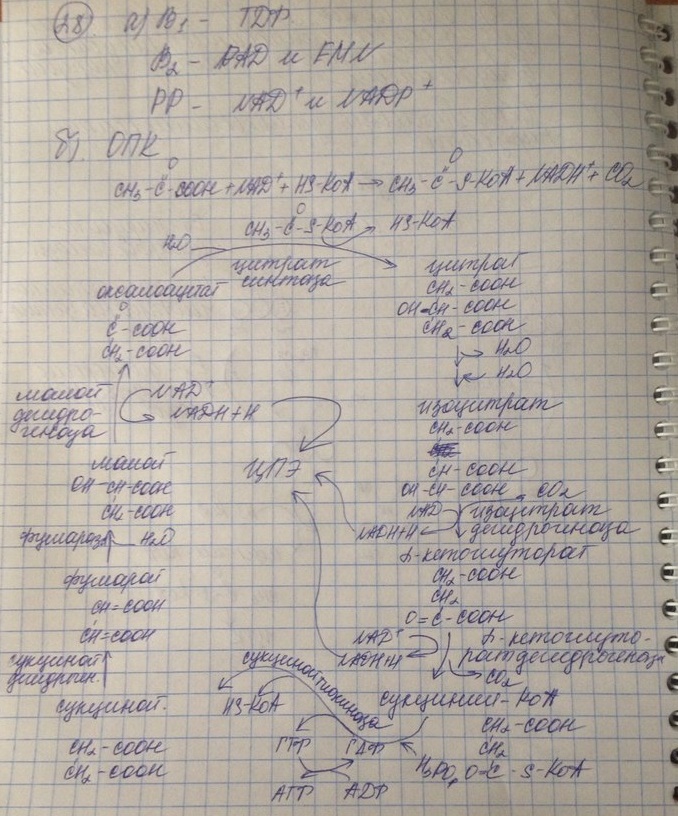 28 а) В1 - TDP
В2 - FAD и FMN
PP - NAD+ и NADP+
б) ОПК
O O
CH3-C-COOH+NAD++HS-KoA → CH3-C-S-KoA+NADH++CO2
O
H2O CH3-C-S-KoA HS-KoA
цитрат
синтаза
оксалоацитат
O
C-COOH
CH2-COOH
цитрат
CH2-COOH
OH-CH-COOH
CH2-COOH
H2O
H2O
малат
дегидро-
геноза
NAD+
NADH+H
ЦПЭ
изоцитрат
CH2-COOH
CH-COOH
OH-CH-COOH CO2
малат
OH-CH-COOH
CH2-COOH
NAD изоцитрат
NADH+H дегидрогеноза
фумароза H2O
α-кетоглуторат
CH2-COOH
CH2
O=C-COOH
фумарат
CH=COOH
CH=COOH
NAD+
NADH+H
α-кетоглуто-
ратдегидрогеноза
CO2
сукцинат
дегидроген.
сукцинаттиокиноза
сукцинат.
CH2-COOH
CH2-COOH
HS-KoA
сукциний-KoA
CH2-COOH
CH2
ГТР ГДР H3PO4 O=C-S-KoA
АТР ADP